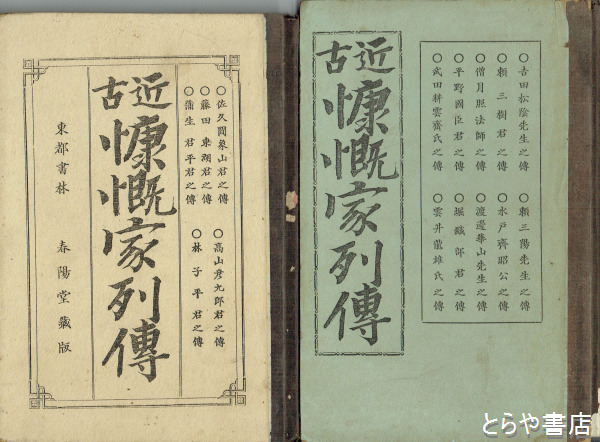 ○佐久間象山君之傳
○高山彦九郎君之傳
○藤田東湖君之傳
○林子平君之傳
○蒲生君平君之傳
近古
慷慨家列傳
東都書林 春陽堂藏版
○吉田松陰先生之傳
○頼三陽先生之傳
○頼三樹君之傳
○水戸齊昭公之傳
○僧月照法師之傳
○渡邊華山先生之傳
○平野國臣君之傳
○堀織部君之傳
○武田耕雲齋氏之傳
○雲井龍雄氏之傳
近古
慷慨家列傳
とらや書店